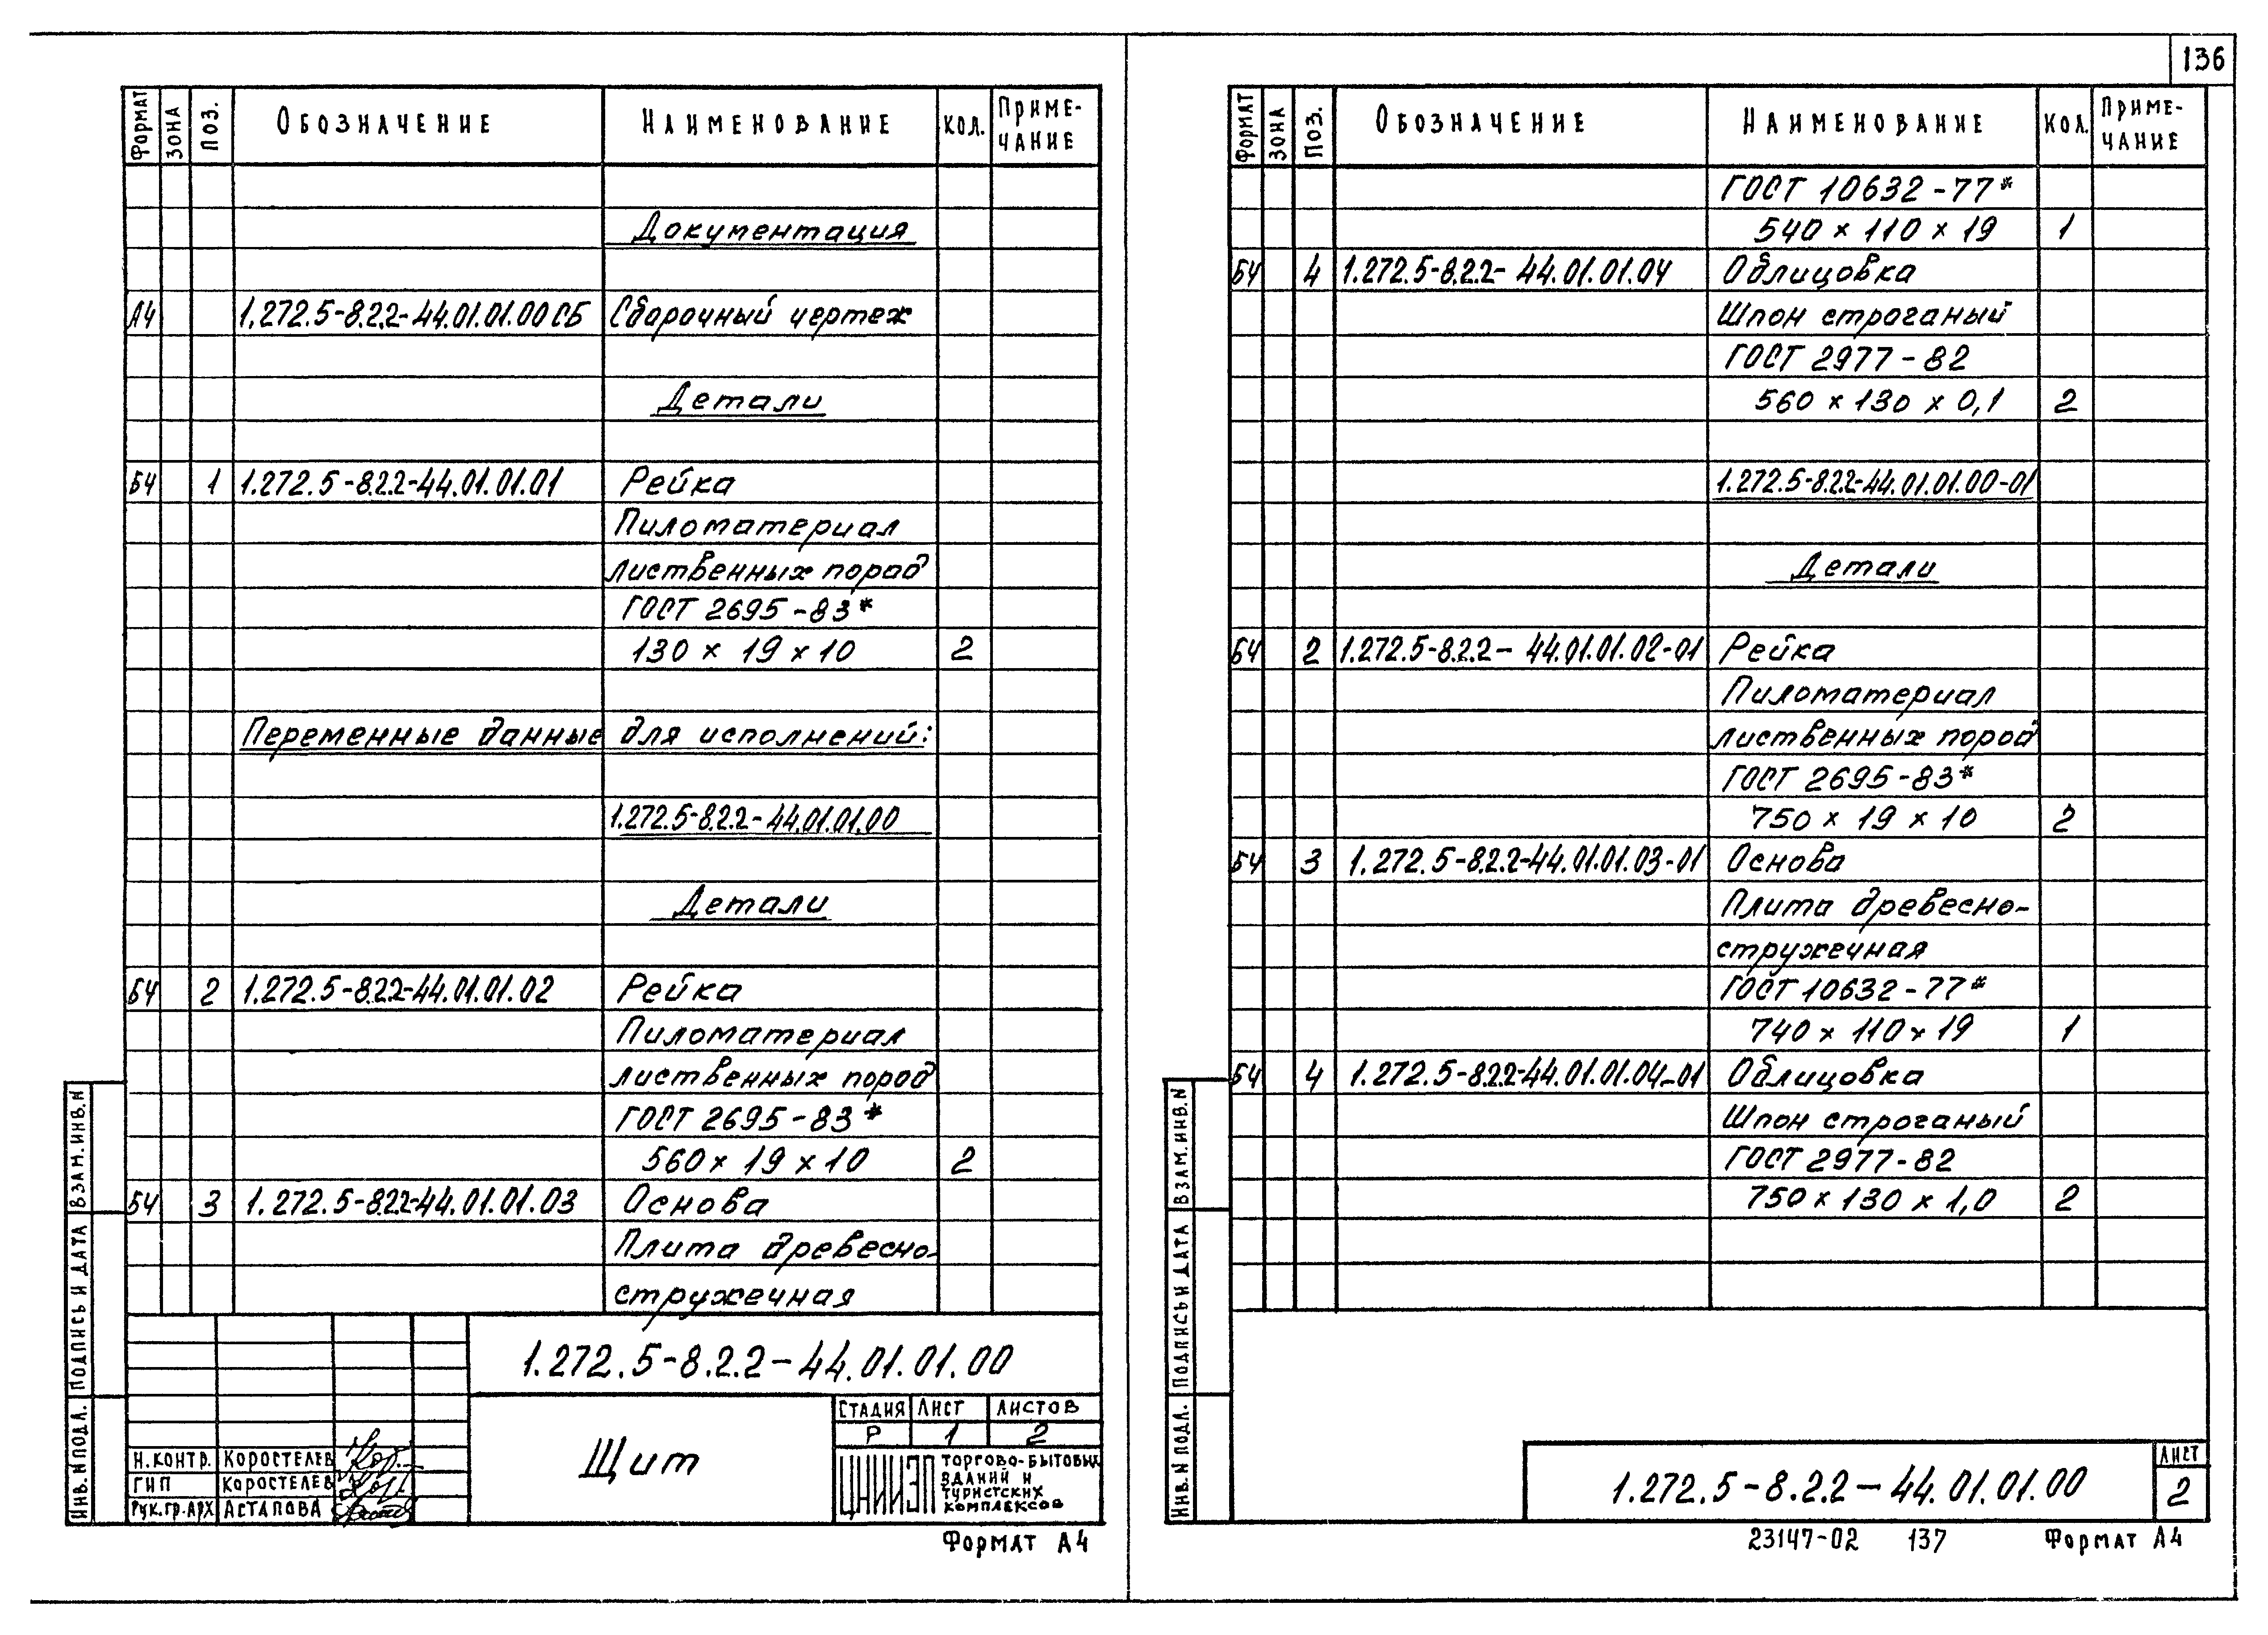 136
Формат Зона Поз. Обозначение Наименование Кол. Приме-
чание
Документация
А4 1.272.5-8.2.2-44.01.01.00СБ Сборочный чертеж
Детали
БЧ 1 1.272.5-8.2.2-44.01.01.01 Рейка
Пиломатериал
лиственных пород
ГОСТ 2695-83*
130 × 19 × 10 2
Переменные данные для исполнений:
1.272.5-8.2.2-44.01.01.00
Детали
БЧ 2 1.272.5-8.2.2-44.01.01.02 Рейка
Пиломатериал
лиственных пород
ГОСТ 2695-83*
560 × 19 × 10 2
БЧ 3 1.272.5-8.2.2-44.01.01.03 Основа
Плита древесно-
стружечная
1.272.5-8.2.2-44.01.01.00
Щит
Стадия Лист Листов
Р 1 2
ЦНИИЭП торгово-бытовых
зданий и
туристских
комплексов
Н.контр. Коростелев
ГИП Коростелев
Рук.гр.арх Астапова
Инв.N подл. Подпись и дата Взам.инв.N
Формат А4
Формат Зона Поз. Обозначение Наименование Кол. Приме-
чание
ГОСТ 10632-77*
540 × 110 × 19 1
БЧ 4 1.272.5-8.2.2-44.01.01.04 Облицовка
Шпон строганый
ГОСТ 2977-82
560 × 130 × 0,1 2
1.272.5-8.2.2-44.01.01.00-01
Детали
БЧ 2 1.272.5-8.2.2-44.01.01.02-01 Рейка
Пиломатериал
лиственных пород
ГОСТ 2695-83*
750 × 19 × 10 2
БЧ 3 1.272.5-8.2.2-44.01.01.03-01 Основа
Плита древесно-
стружечная
ГОСТ 10632-77*
740 × 110 × 19 1
БЧ 4 1.272.5-8.2.2-44.01.01.04-01 Облицовка
Шпон строганый
ГОСТ 2977-82
750 × 130 × 1,0 2
Инв.N подл. Подпись и дата Взам.инв.N
1.272.5-8.2.2-44.01.01.00
Лист
2
23147-02 137 Формат А4